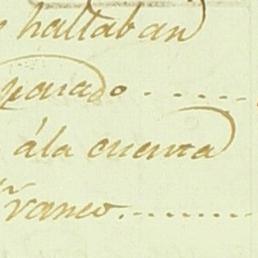 hallaban
parado ......
á la cuenta
vaneo.......